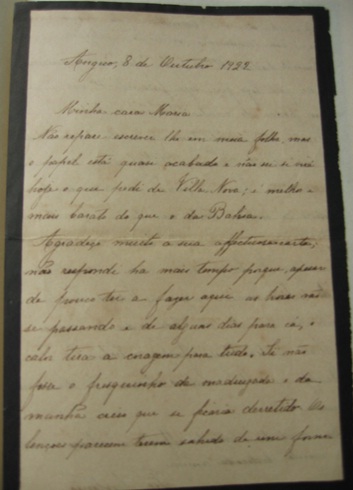 Angico, 8 de Outubro 1922
Minha cara Maria
Não repare escrever lhe em meia folha, mas
o papel está quasi acabado e não sei si vei
hoje o que pedi da Villa Nova; é melho e
mais barato do que o da Bahia.
Agradeço muito a sua affectuosa carta;
não respondi ha mais tempo porque, apesar
de pouco ter a fazer aqui as horas vão
se passando e de alguns dias para cá, o
calor tira a coragem para tudo. Se não
fosse o fresquinho da madrugada e da
manhã creio que se ficaria derretido. Os
lençoes parecem terem sahido de um forno